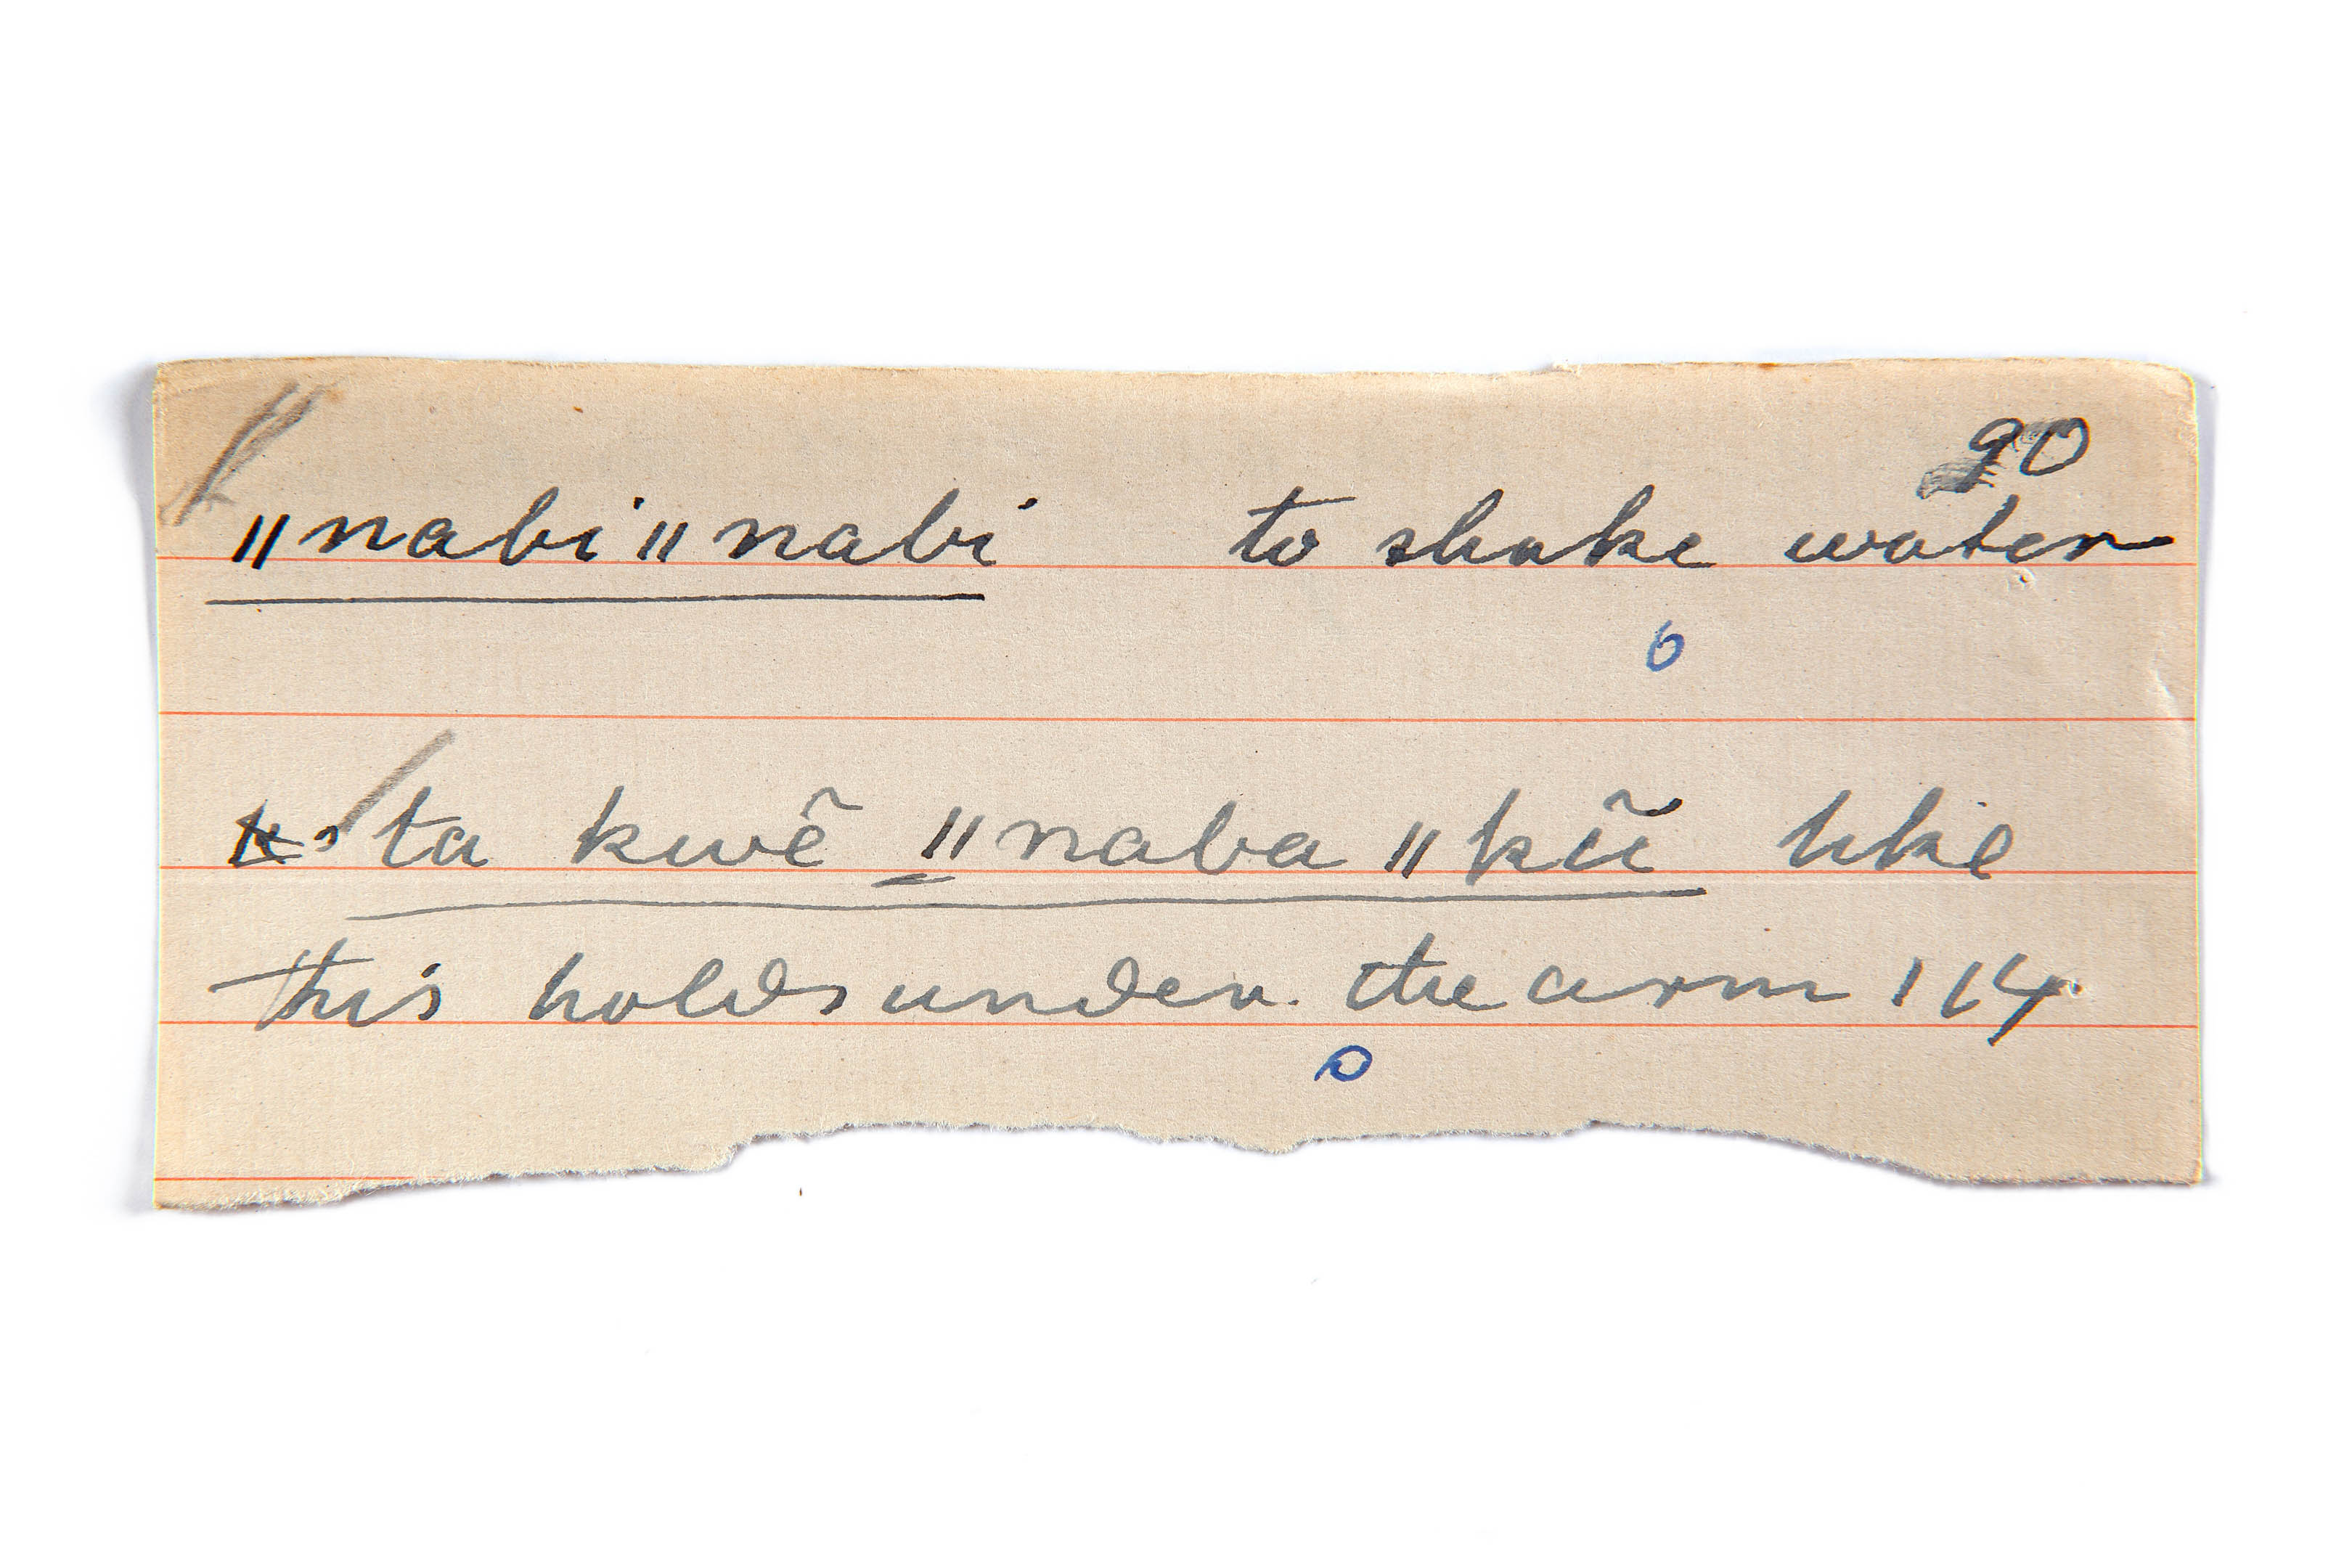 90
ǁnabiǁnabi to shake water
6
ta kwẽ ǁnaba ǁkũ like
this holds under the arm 114
o